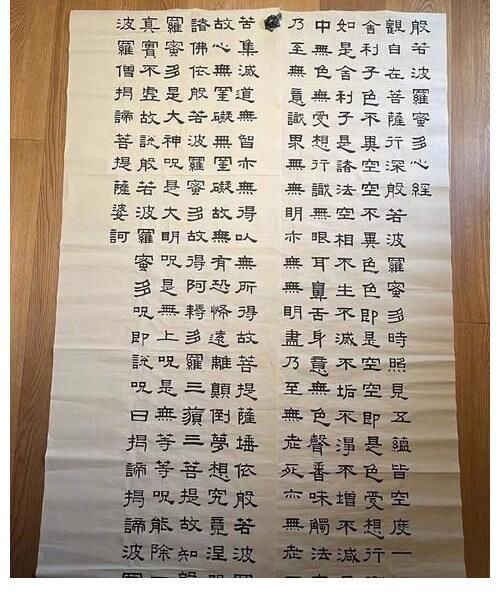 般若波羅蜜多心經
觀自在菩薩行深般若波羅蜜多時照見五蘊皆空度一
舍利子色不異空空不異色色即是空空即是色受想行
如是舍利子是諸法空相不生不滅不垢不淨不增不減
中無色無受想行識無眼耳鼻舌身意無色聲香味觸法
乃至無意識界無無明亦無無明盡乃至無老死亦無老
苦集滅道無智亦無得以無所得故菩提薩埵依般若波
故心無罣礙無罣礙故無有恐怖遠離顛倒夢想究竟涅
諸佛依般若波羅蜜多故得阿耨多羅三藐三菩提故知般
羅蜜多是大神呪是大明呪是無上呪是無等等呪能除一
真實不虛故說般若波羅蜜多呪即說呪曰揭諦揭諦波羅
波羅僧揭諦菩提薩婆訶